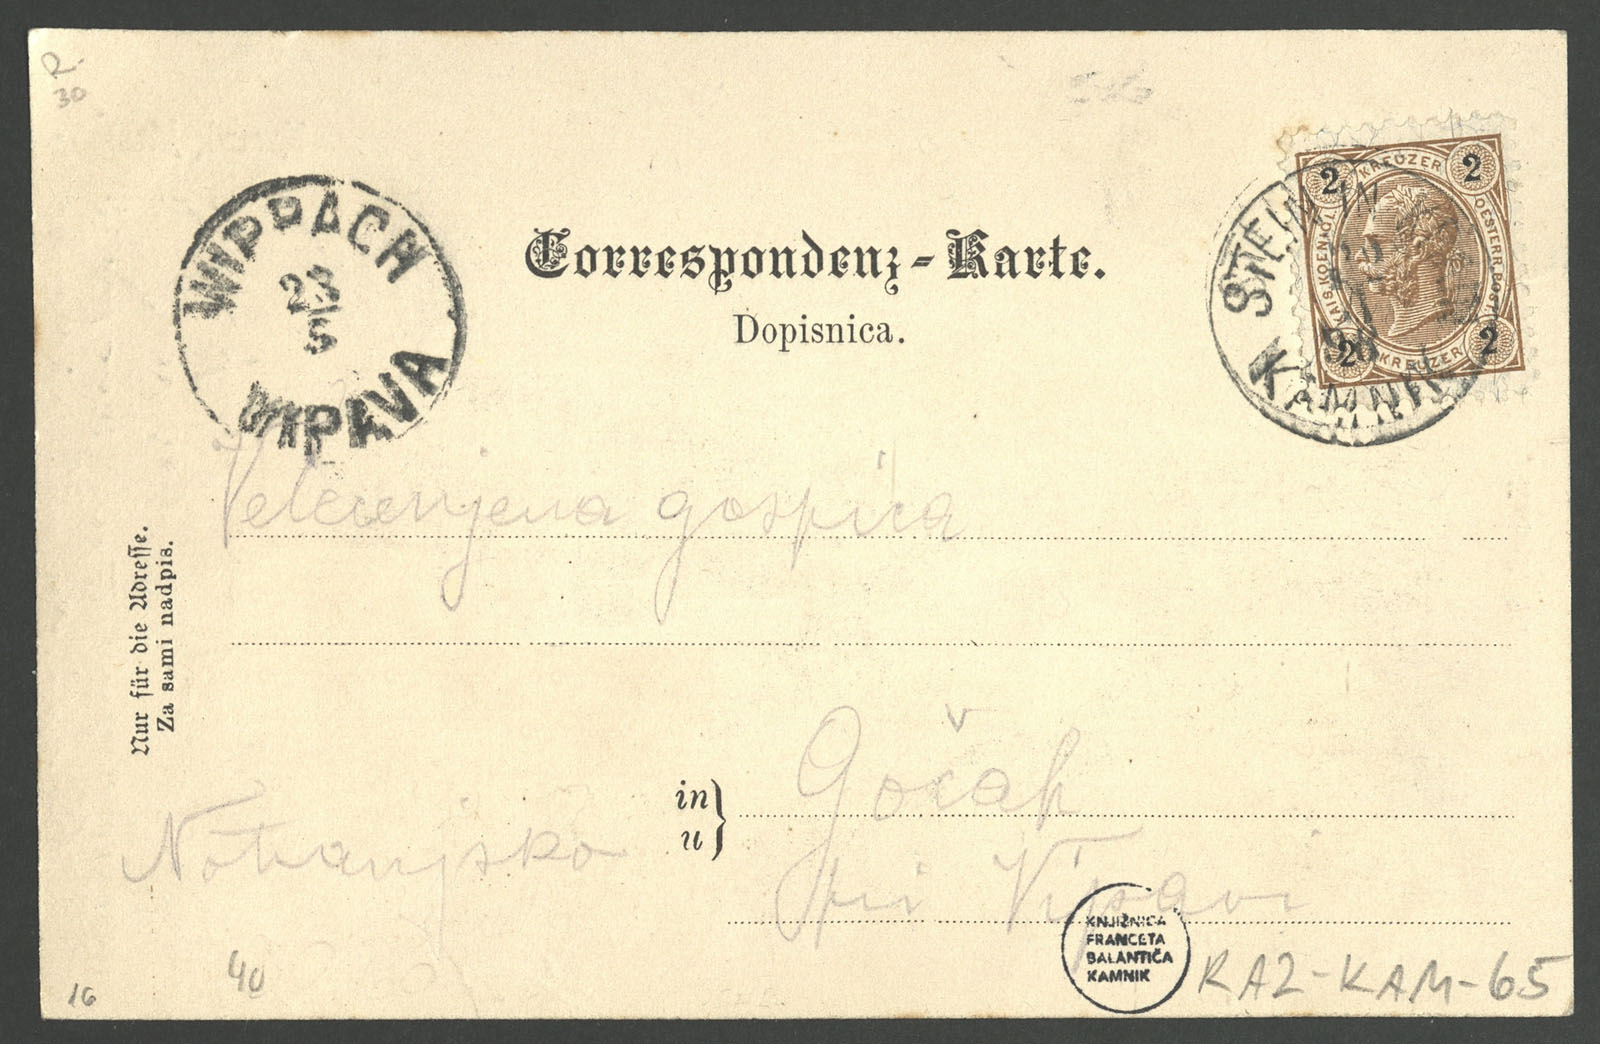 R.
30
WIPPACH
23
5
WIPAVA
Correspondenz-Karte.
Dopisnica.
2 KREUZER 2
KAIS. KOENIGL. OESTERR. POST
2 KREUZER 2
STEIN IN K
KAMNIK
Nur für die Adresse.
Za sami nadpis.
Velecenjena gospica
in
u
Gočah
pri Vipavi
Notranjsko
KNJIŽNICA
FRANCETA
BALANTIČA
KAMNIK
RAZ-KAM-65
40
16